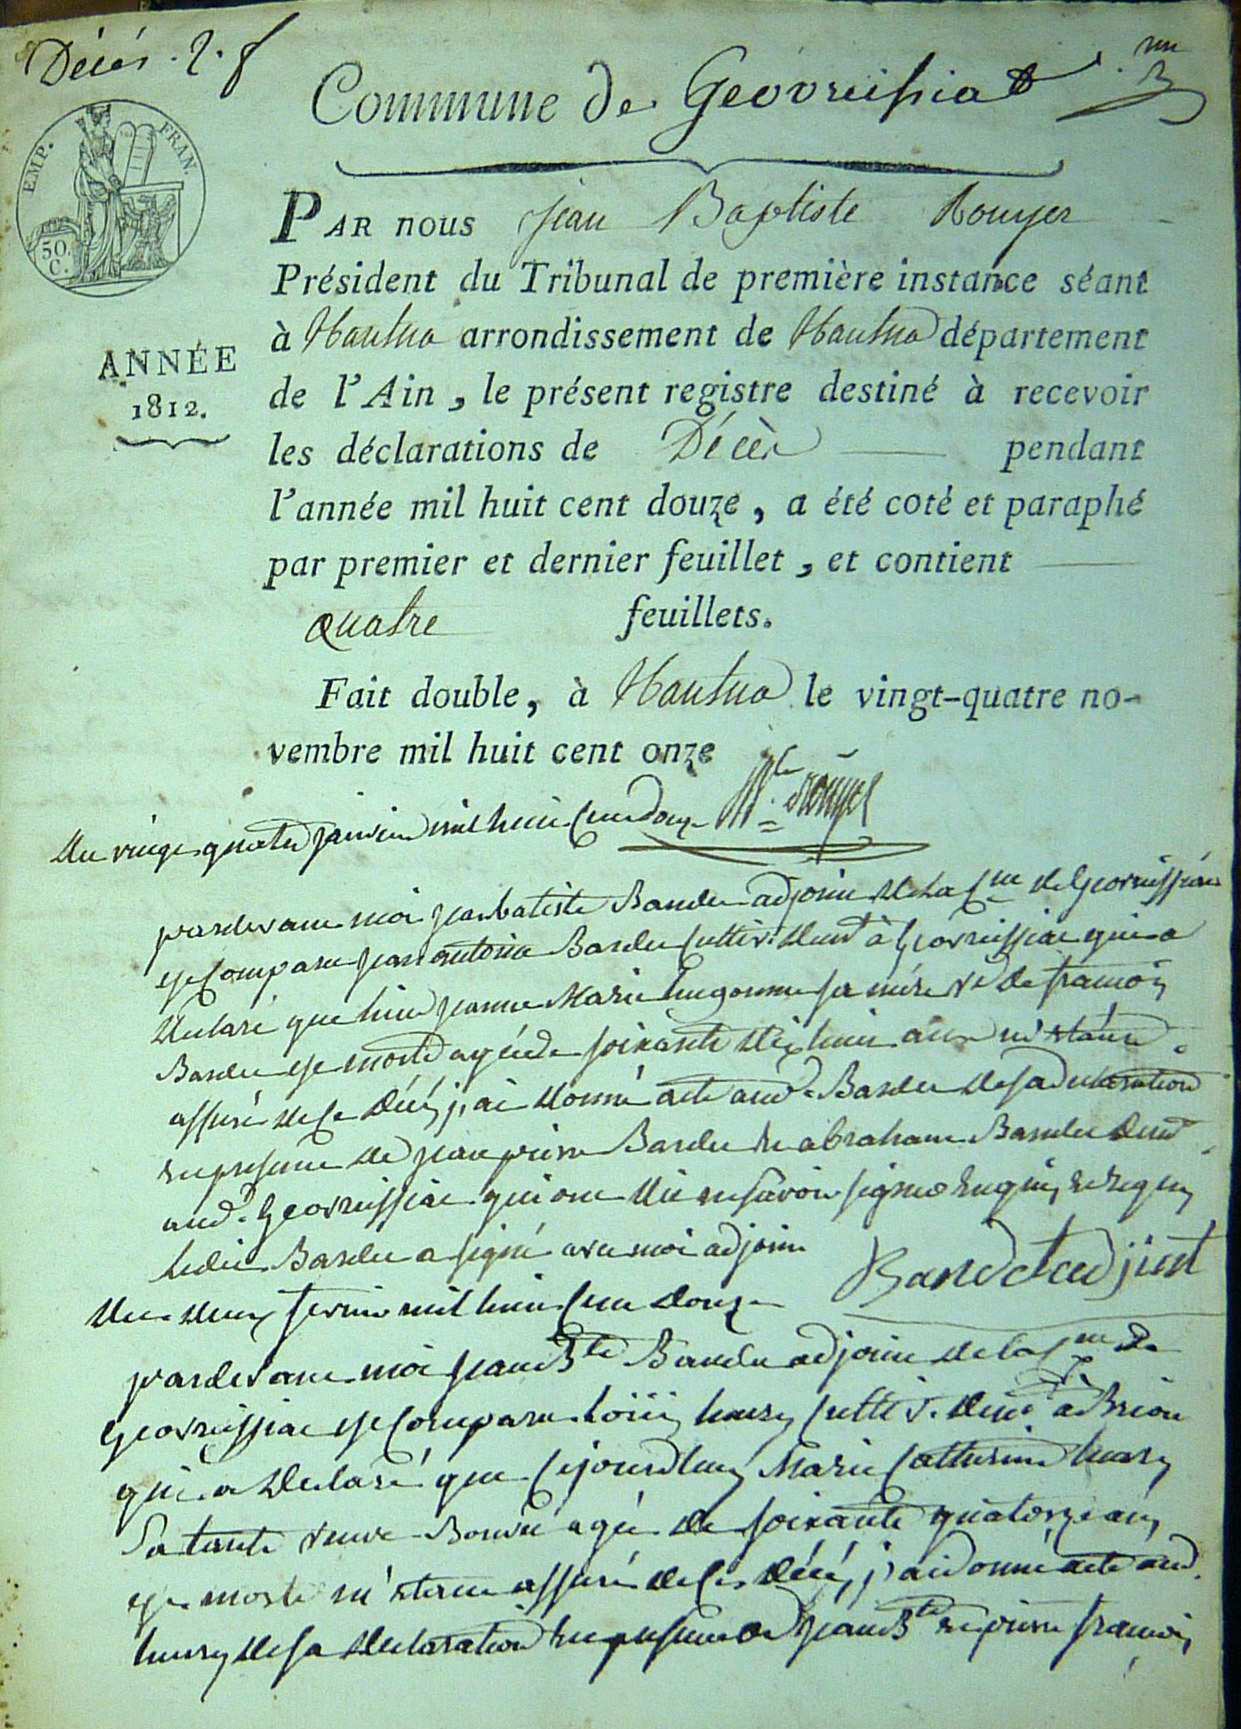 Décès. 2. f
Commune de Géovreissiat
EMP. FRAN.
50 C.
ANNÉE
1812.
PAR nous Jean Baptiste Rouyer
Président du Tribunal de première instance séant
à Nantua arrondissement de Nantua département
de l'Ain, le présent registre destiné à recevoir
les déclarations de Décès pendant
l'année mil huit cent douze, a été coté et paraphé
par premier et dernier feuillet, et contient
quatre feuillets.
Fait double, à Nantua le vingt-quatre no-
vembre mil huit cent onze
Du vingt quatre janvier mil huit cent douze
pardevant moi jean batiste Bandet adjoint de la Cne de Geovreissiat
est Comparu jean antoine Bandet cultiv. demt à Geovreissiat qui a
declaré que hier jeanne Marie hugonnet sa mère ve de francois
Bandet est morte agée de soixante dix huit ans m'étant
assuré de ce décés j'ai donné acte aud. Bandet de sa declaration
en presence de jean pierre Bandet et abraham Bandet demt
aud. Geovreissiat qui ont dit ne savoir signer enquis et requis
ledit Bandet a signé avec moi adjoint
Bandet adjint
Du deux fevrier mil huit cent douze
pardevant moi jean Bte Bandet adjoint de la Cne de
Geovreissiat est Comparu hury cultiv. demt à Brion
qui a declaré que cejourdhuy Marie Catherine hury
Sa tante veuve agée de soixante quatorze ans
est morte m'étant assuré de ces décés, j'ai donné acte aud.
hury de sa declaration en presence de jean Bte et pierre francois